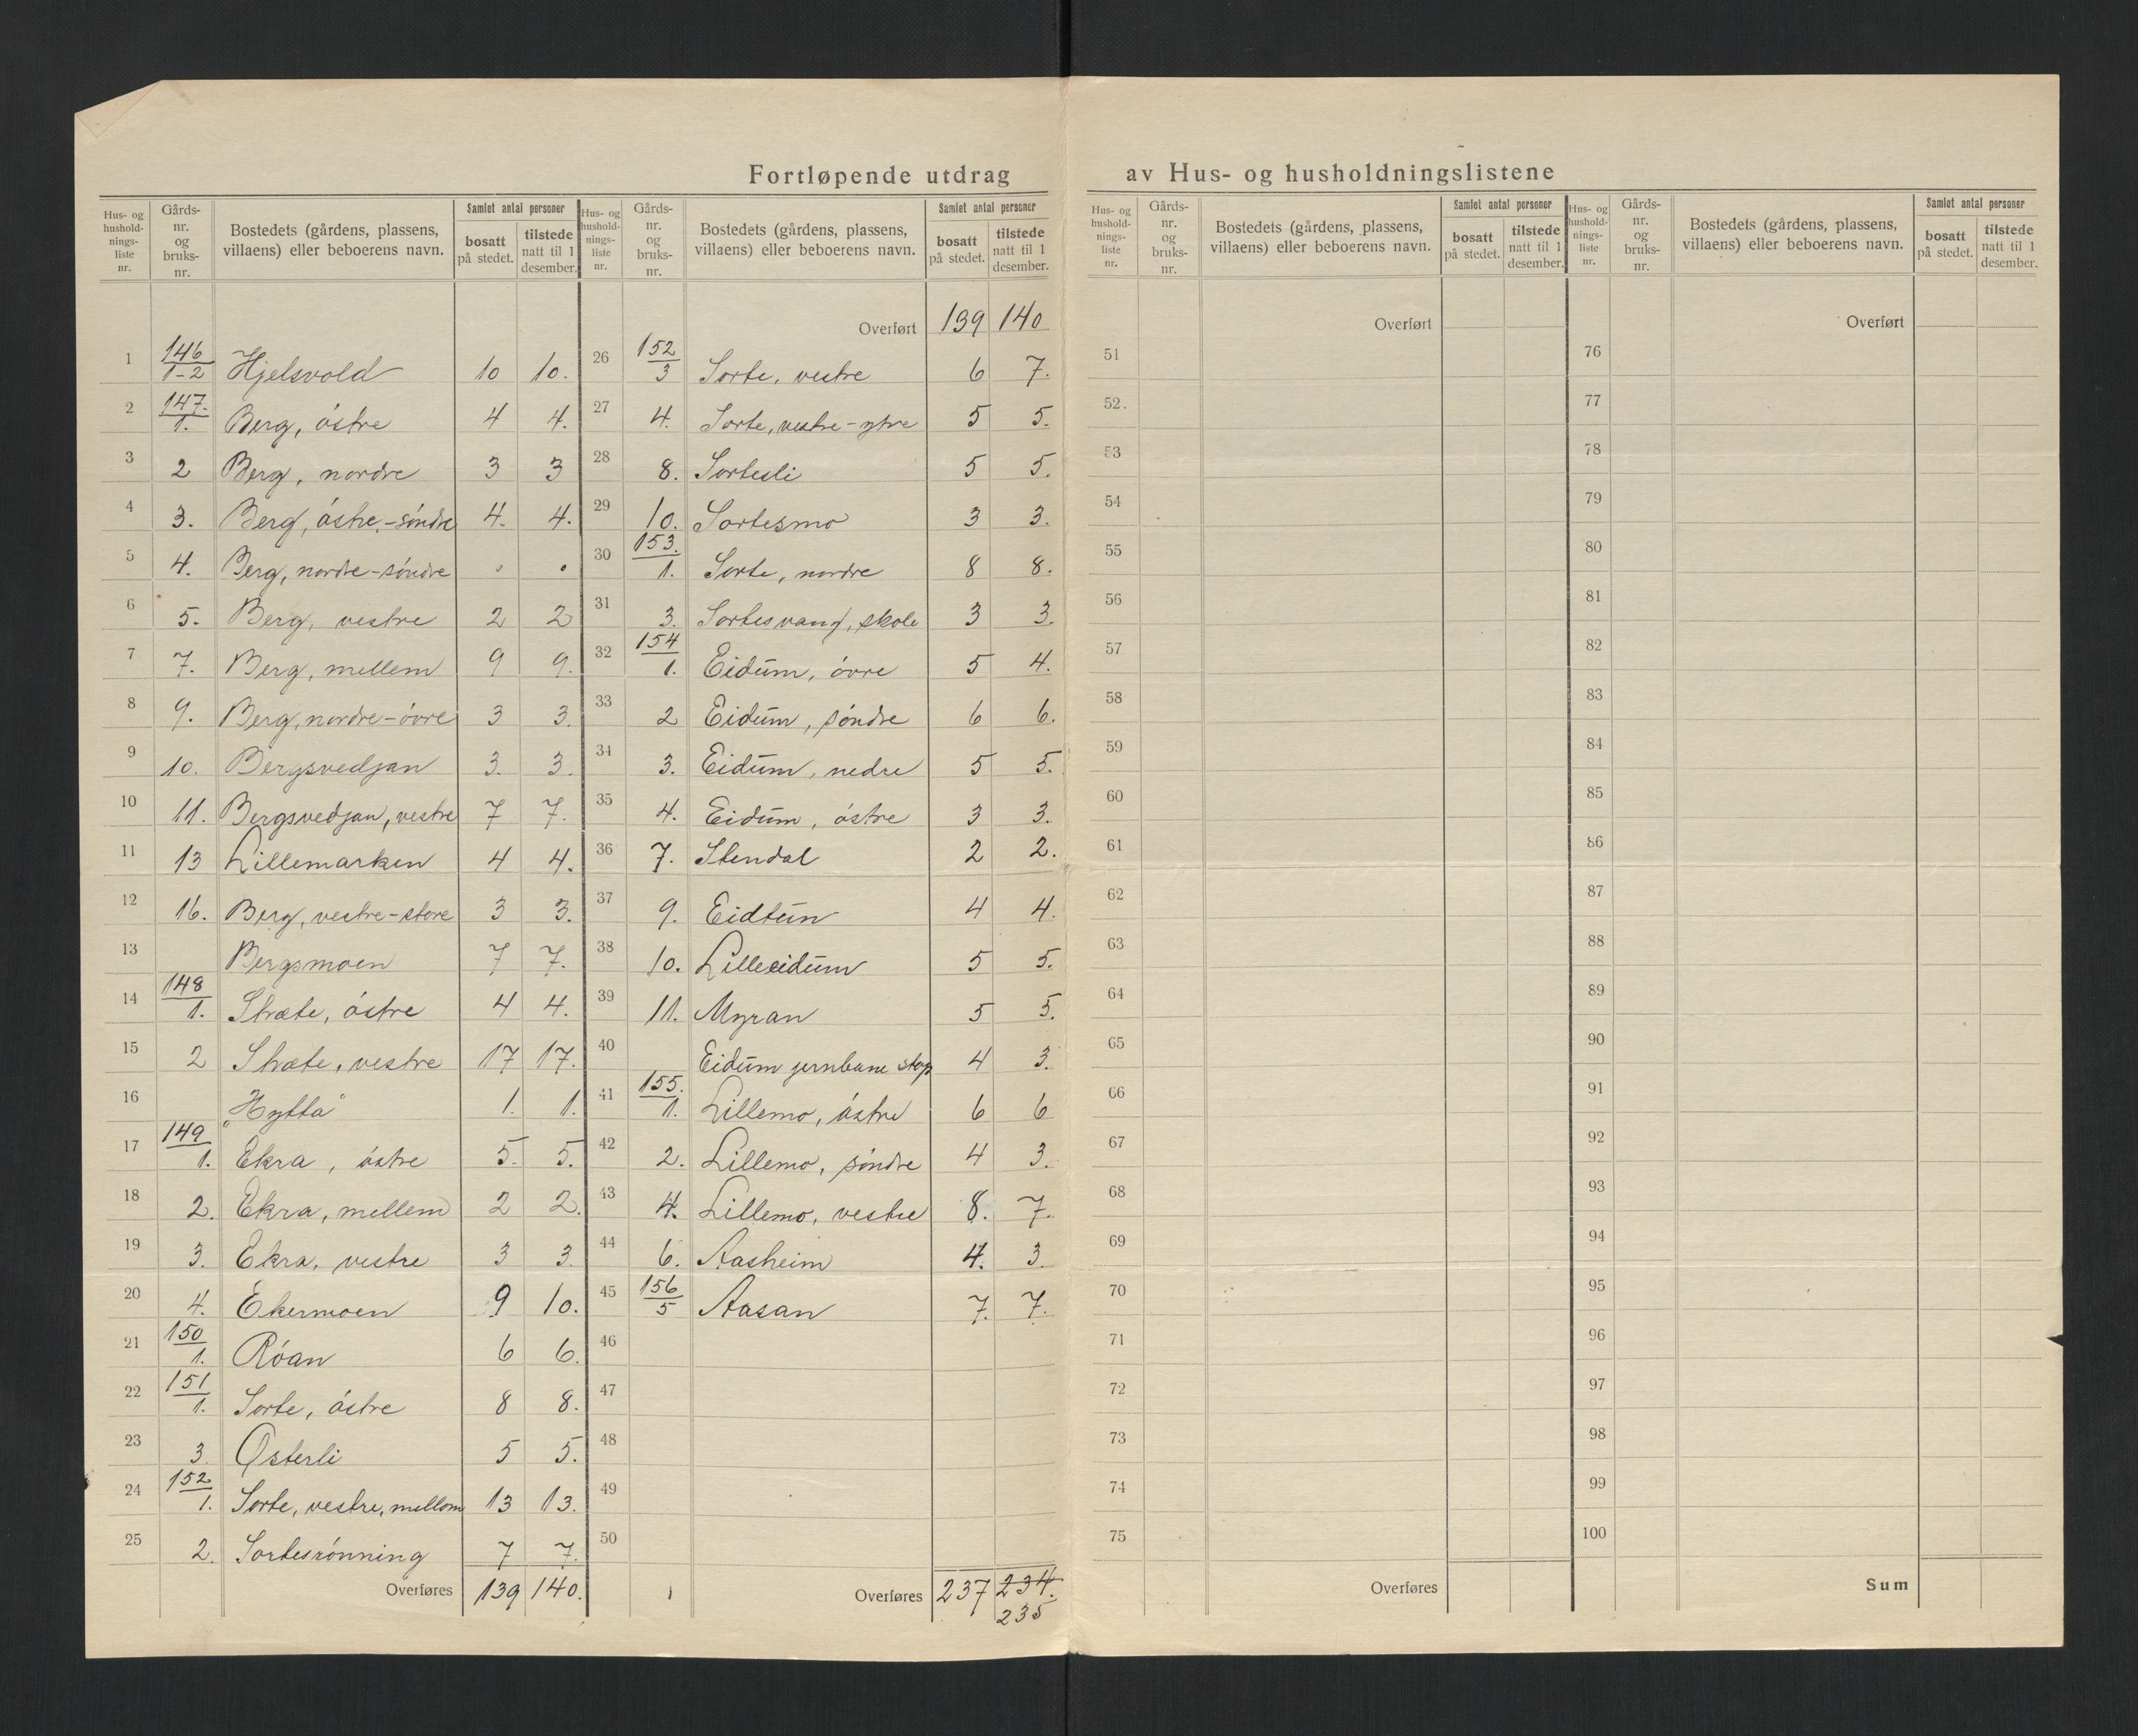 Fortløpende utdrag av Hus- og husholdningslistene
Hus- og hushold- nings- liste nr. | Gårds- nr. og bruks- nr. | Bostedets (gårdens, plassens, villaens) eller beboerens navn. | Samlet antal personer | bosatt på stedet. | tilstede natt til 1 desember.
1 146/1-2 Hjelsvold 10 10.
2 147./1. Berg, östre 4 4.
3 2 Berg, nordre 3 3
4 3. Berg, östre,-söndre 4. 4.
5 4. Berg, nordre-söndre . .
6 5. Berg, vestre 2 2
7 7. Berg, mellem 9 9.
8 9. Berg, nordre-övre 3 3.
9 10. Bergsvedjan 3. 3.
10 11. Bergsvedjan, vestre 7 7.
11 13 Lillemarken 4 4.
12 16. Berg, vestre-store 3 3.
13 Bergsmoen 7 7.
14 148/1. Stræte, östre 4 4.
15 2 Stræte, vestre 17 17.
16 „Hytta" 1. 1.
17 149/1. Ekra, östre 5. 5.
18 2. Ekra, mellem 2 2.
19 3. Ekra, vestre 3 3.
20 4. Ekermoen 9 10.
21 150/1. Röan 6 6.
22 151/1. Sorte, östre 8 8.
23 3. Østerli 5 5.
24 152/1. Sorte, vestre, mellom 13 13.
25 2. Sortesrönning 7 7.
Overføres 139 140.
Hus- og hushold- nings- liste nr. | Gårds- nr. og bruks- nr. | Bostedets (gårdens, plassens, villaens) eller beboerens navn. | Samlet antal personer | bosatt på stedet. | tilstede natt til 1 desember.
Overført 139 140
26 152/3 Sorte, vestre 6 7.
27 4. Sorte, vestre-ytre 5 5.
28 8. Sortesli 5 5.
29 10. Sortesmo 3 3.
30 153./1. Sorte, nordre 8 8.
31 3. Sortesvang, skole 3 3.
32 154/1. Eidum, övre 5 4.
33 2 Eidum, söndre 6 6.
34 3. Eidum, nedre 5 5.
35 4. Eidum, östre 3 3.
36 7. Stendal 2 2.
37 9. Eidtun 4 4.
38 10. Lilleeidum 5 5.
39 11. Myran 5 5.
40 Eidum jernbane stop 4 3.
41 155./1. Lillemo, östre 6 6
42 2. Lillemo, söndre 4 3.
43 4. Lillemo, vestre 8. 7.
44 6. Aasheim 4. 3.
45 156/5 Aasan 7. 7.
46
47
48
49
50
Overføres 237 234.
235
Hus- og hushold- nings- liste nr. | Gårds- nr. og bruks- nr. | Bostedets (gårdens, plassens, villaens) eller beboerens navn. | Samlet antal personer | bosatt på stedet. | tilstede natt til 1 desember.
Overført
51
52.
53
54
55
56
57
58
59
60
61
62
63
64
65
66
67
68
69
70
71
72
73
74
75
Overføres
Hus- og hushold- nings- liste nr. | Gårds- nr. og bruks- nr. | Bostedets (gårdens, plassens, villaens) eller beboerens navn. | Samlet antal personer | bosatt på stedet. | tilstede natt til 1 desember.
Overført
76
77
78
79
80
81
82
83
84
85
86
87
88
89
90
91
92
93
94
95
96
97
98
99
100
Sum